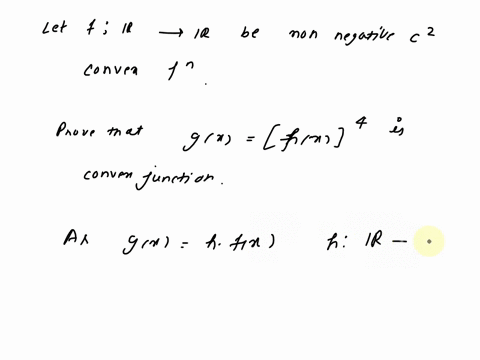 Let f : IR → IR be non negative c²
convex fⁿ.
Prove that g(x) = [f(x)]⁴ is
convex function.
As g(x) = h. f(x) h: IR –